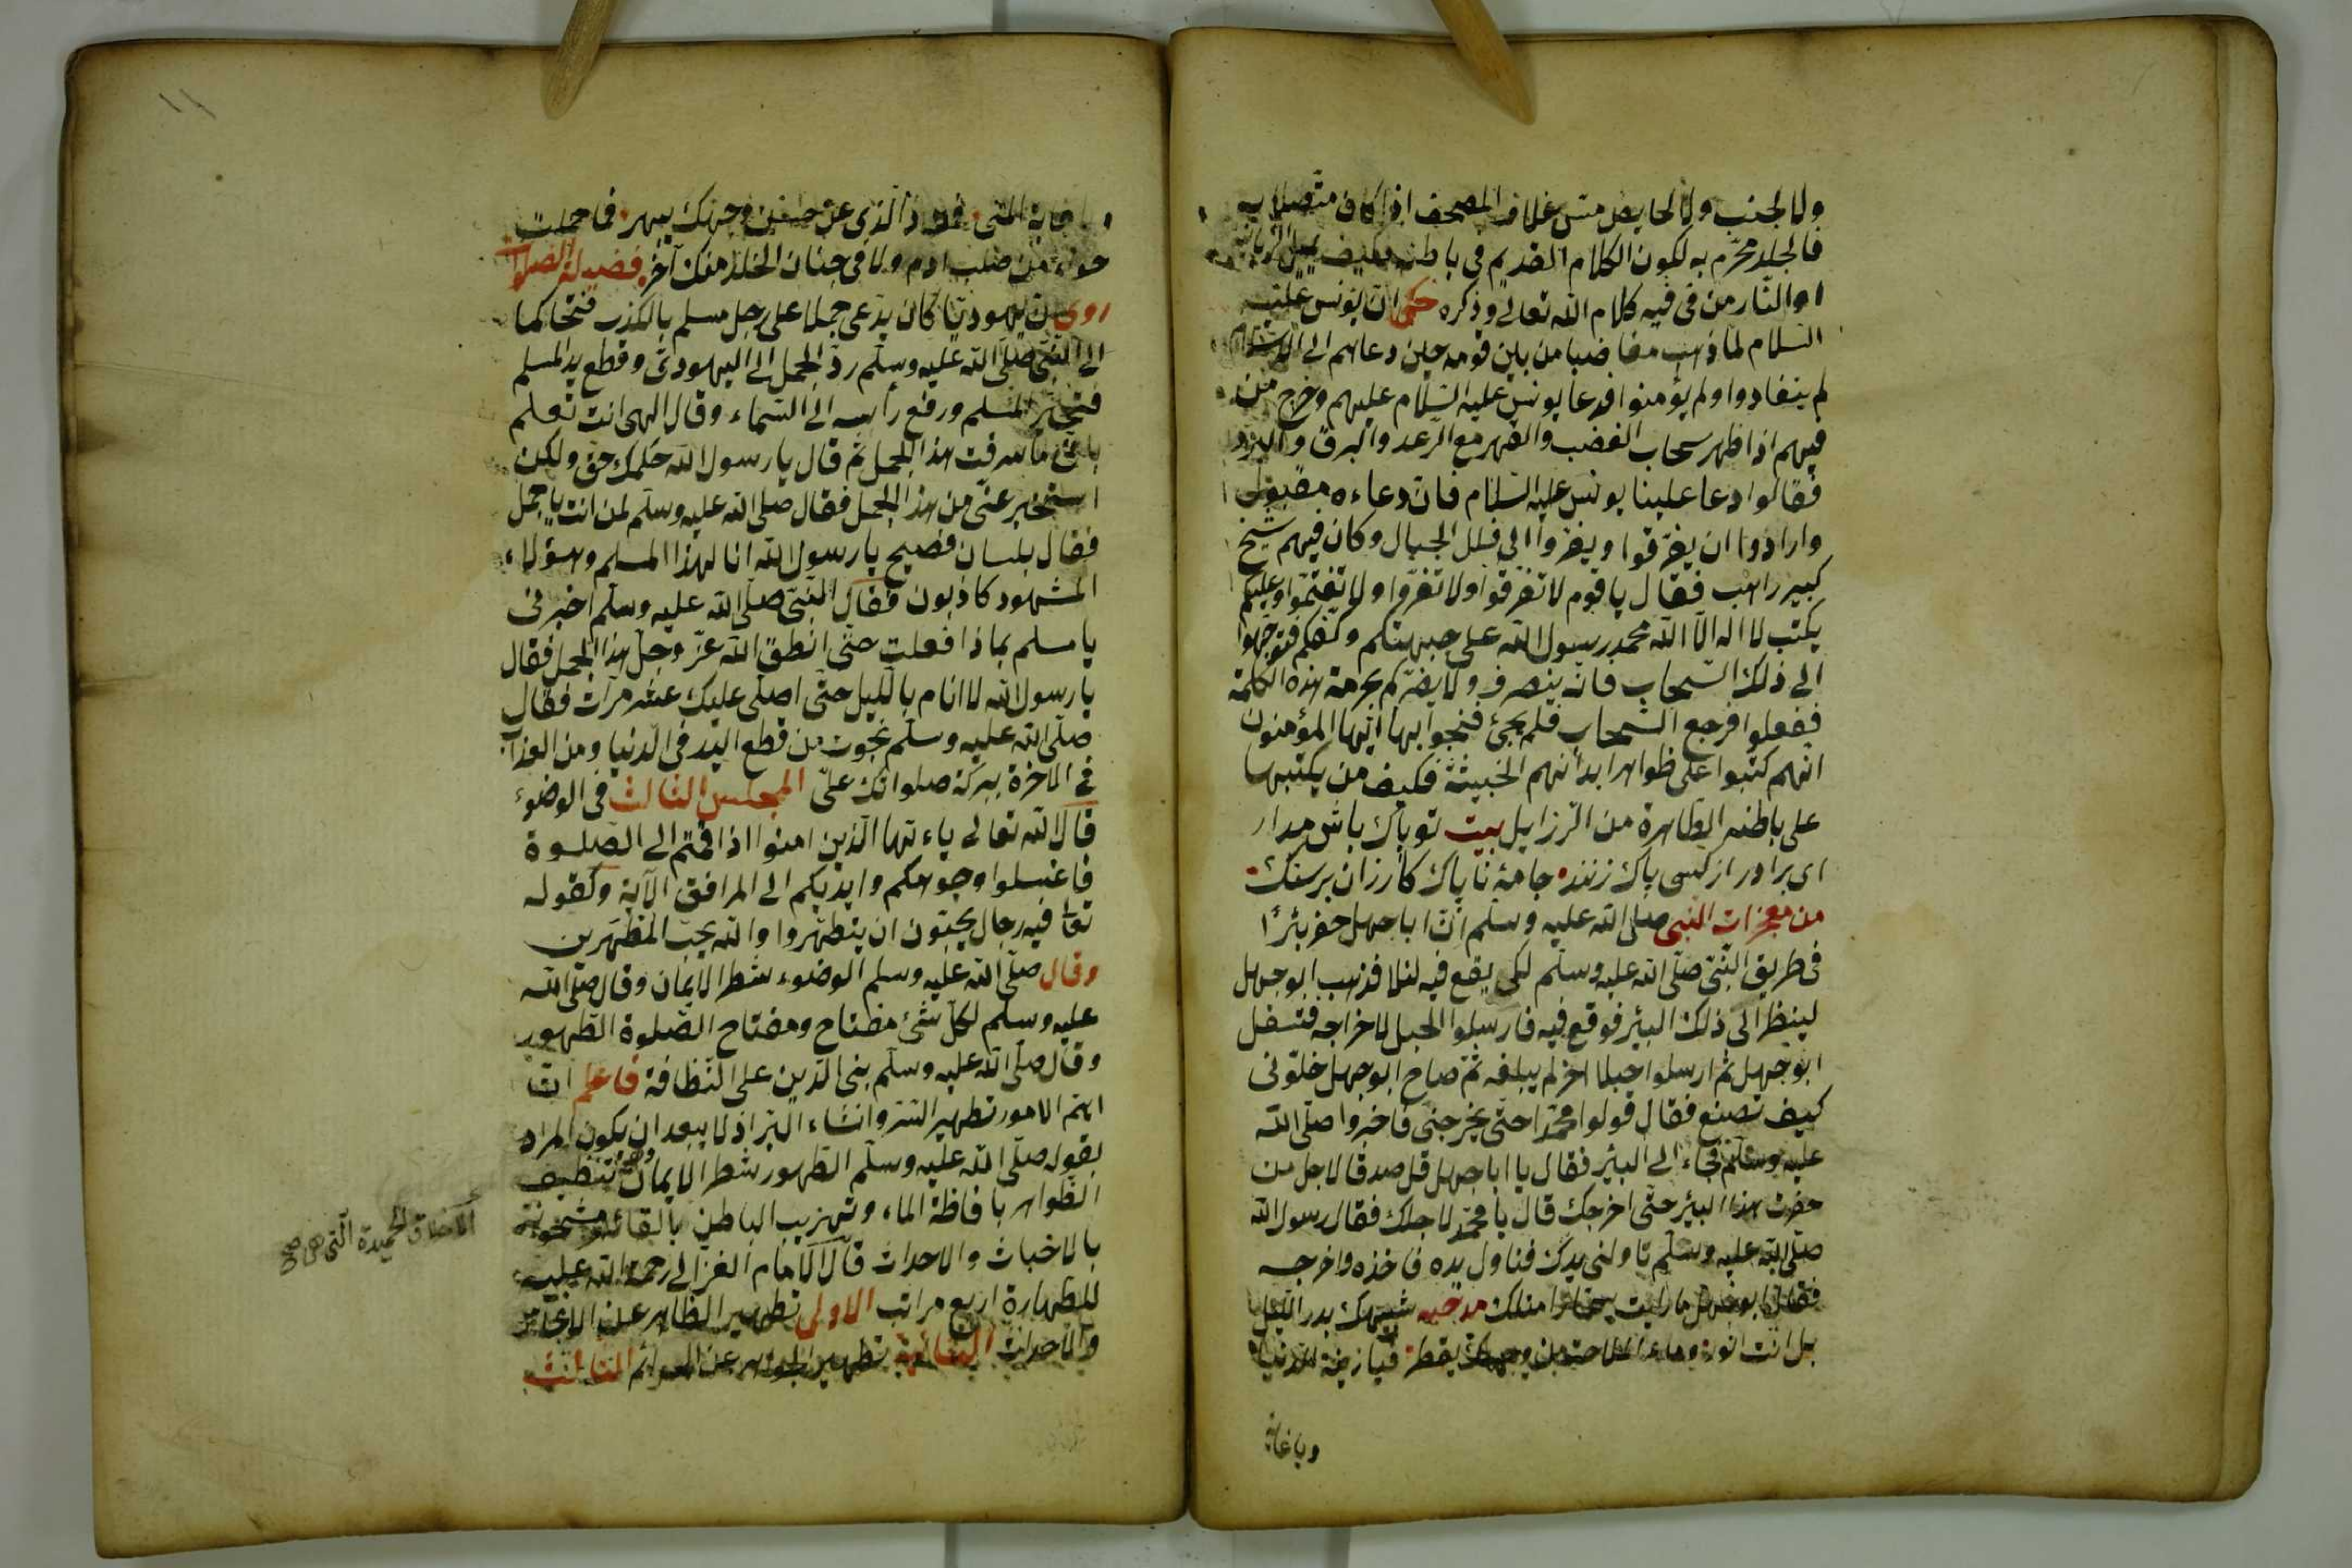 ولا لجنب ولا لحايض مس غلاف المصحف اذا كان متصلا به
فالجلد محرم به لكون الكلام القديم في باطنه فكيف
النار من في فيه كلام الله تعالى وذكره حكى ان يونس عليه
السلام لما ذهب مغاضبا من بين قومه حين دعاهم الى
لم ينقادوا ولم يؤمنوا فدعا يونس عليه السلام عليهم وخرج من
فيهم اذا ظهر سحاب الغضب والقهر مع الرعد والبرق و
فقالوا دعا علينا يونس عليه السلام فان دعاءه مقبول
وارادوا ان يفرقوا ويفروا الى قلل الجبال وكان فيهم شيخ
كبير راهب فقال يا قوم لا تفرقوا ولا تفروا ولا تغتموا وعليكم
يكتب لا اله الا الله محمد رسول الله على جبهتكم وكفكم فتوجهوا
الى ذلك السحاب فانه ينصرف ولا يضركم بحرمة هذه الكلمة
ففعلوا فرجع السحاب فلم يجئ فنجوا بها ايها المؤمنون
انهم كتبوا على ظواهر ابدانهم الخبيثة فكيف من يكتبها
على باطنه الطاهرة من الرزايل بيت تو پاك باش مدار
اى برادر از كسى باك زنند جامهٔ ناپاك كازران برسنك
من معجزات النبى صلى الله عليه وسلم ان ابا جهل حفر بئرا
فى طريق النبى صلى الله عليه وسلم لكى يقع فيه ليلا فذهب ابو جهل
لينظر الى ذلك البئر فوقع فيه فارسلوا الحبل لاخراجه فتسفل
ابو جهل ثم ارسلوا حبلا اخر لم يبلغه ثم صاح ابو جهل خلونى
كيف تصنع فقال قولوا محمدا حتى يخرجنى فاخبروا صلى الله
عليه وسلم فجاء الى البئر فقال يا ابا جهل قل صدقا لاجل من
حفرت هذا البئر حتى اخرجك قال يا محمد لاجلك فقال رسول الله
صلى الله عليه وسلم ناولنى يدك فناول يده فاخذه واخرجه
فقال ابو جهل ما رايت سحارا مثلك مدحيه شبيهك بدر الليل
بل انت انور وماء الملاحة من وجهك يقطر فيا زينة الدنيا
ويا غاية
١١
ويا غاية المنى فمن ذا الذى عن حسن وجهك يصبر فما حملت
حواء من صلب ادم ولا فى جنان الخلد مثلك آخر فضيلة الصلوات
روى ان يهوديا كان يدعى جملا على رجل مسلم بالكذب فتحاكما
الى النبى صلى الله عليه وسلم رد الجمل الى اليهودى وقطع يد المسلم
فتحير المسلم ورفع رأسه الى السماء وقال الهى انت تعلم
بانى ما سرقت هذا الجمل ثم قال يا رسول الله حكمك حق ولكن
استخبر عنى من هذا الجمل فقال صلى الله عليه وسلم لمن انت يا جمل
فقال بلسان فصيح يا رسول الله انا لهذا المسلم وهؤلاء
المشهود كاذبون فقال النبى صلى الله عليه وسلم اخبرنى
يا مسلم بماذا فعلت حتى انطق الله عز وجل هذا الجمل فقال
يا رسول الله لا انام بالليل حتى اصلى عليك عشر مرات فقال
صلى الله عليه وسلم نجوت من قطع اليد فى الدنيا ومن العذاب
فى الاخرة ببركة صلواتك على المجلس الثالث فى الوضوء
قال الله تعالى ياءيها الذين امنوا اذا قمتم الى الصلوة
فاغسلوا وجوهكم وايديكم الى المرافق الآية وكقوله
تعا فيه رجال يحبون ان يتطهروا والله يحب المطهرين
وقال صلى الله عليه وسلم الوضوء شطر الايمان وقال صلى الله
عليه وسلم لكل شئ مفتاح ومفتاح الصلوة الطهور
وقال صلى الله عليه وسلم بنى الدين على النظافة فاعلم ان
اهم الامور تطهير السر وانشاء البر اذ لا يبعد ان يكون المراد
بقوله صلى الله عليه وسلم الطهور شطر الايمان تنظيف
الظواهر بافاظة الماء وتهزيب الباطن بالقائه مشحونة
الاخلاق الحميدة التى هى صح
بالاخباث والاحداث قال الامام الغزالى رحمة الله عليه
للطهارة اربع مراتب الاولى تطهير الظاهر عن
والاحداث الثانية تطهير الجوارح عن الجرائم الثالث